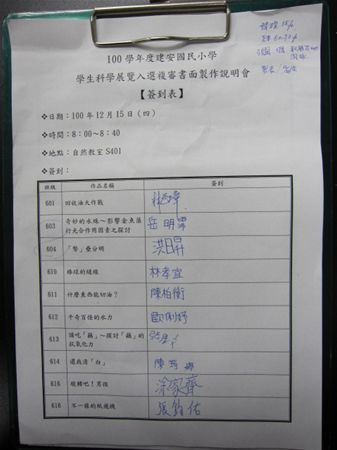 100 學年度建安國民小學
學生科學展覽入選複審書面製作說明會
【簽到表】
❖日期：100 年 12 月 15 日（四）
❖時間：8：00～8：40
❖地點：自然教室 S401
❖簽到：
班級 作品名稱 簽到
601 回收油大作戰
603 奇妙的水珠～影響金魚藻 岳明
行光合作用因素之探討
604 「幣」垂分明 洪日昇
610 棒球的縫線 林孝宜
611 什麼東西能切油？ 陳柏衡
612 千奇百怪的水力
613 請吃「蘋」～探討「蘋」的
抗氧化力
614 還我清「白」 陳
616 旋轉吧！男孩 涂家齊
616 不一樣的紙飛機 張鈞佑